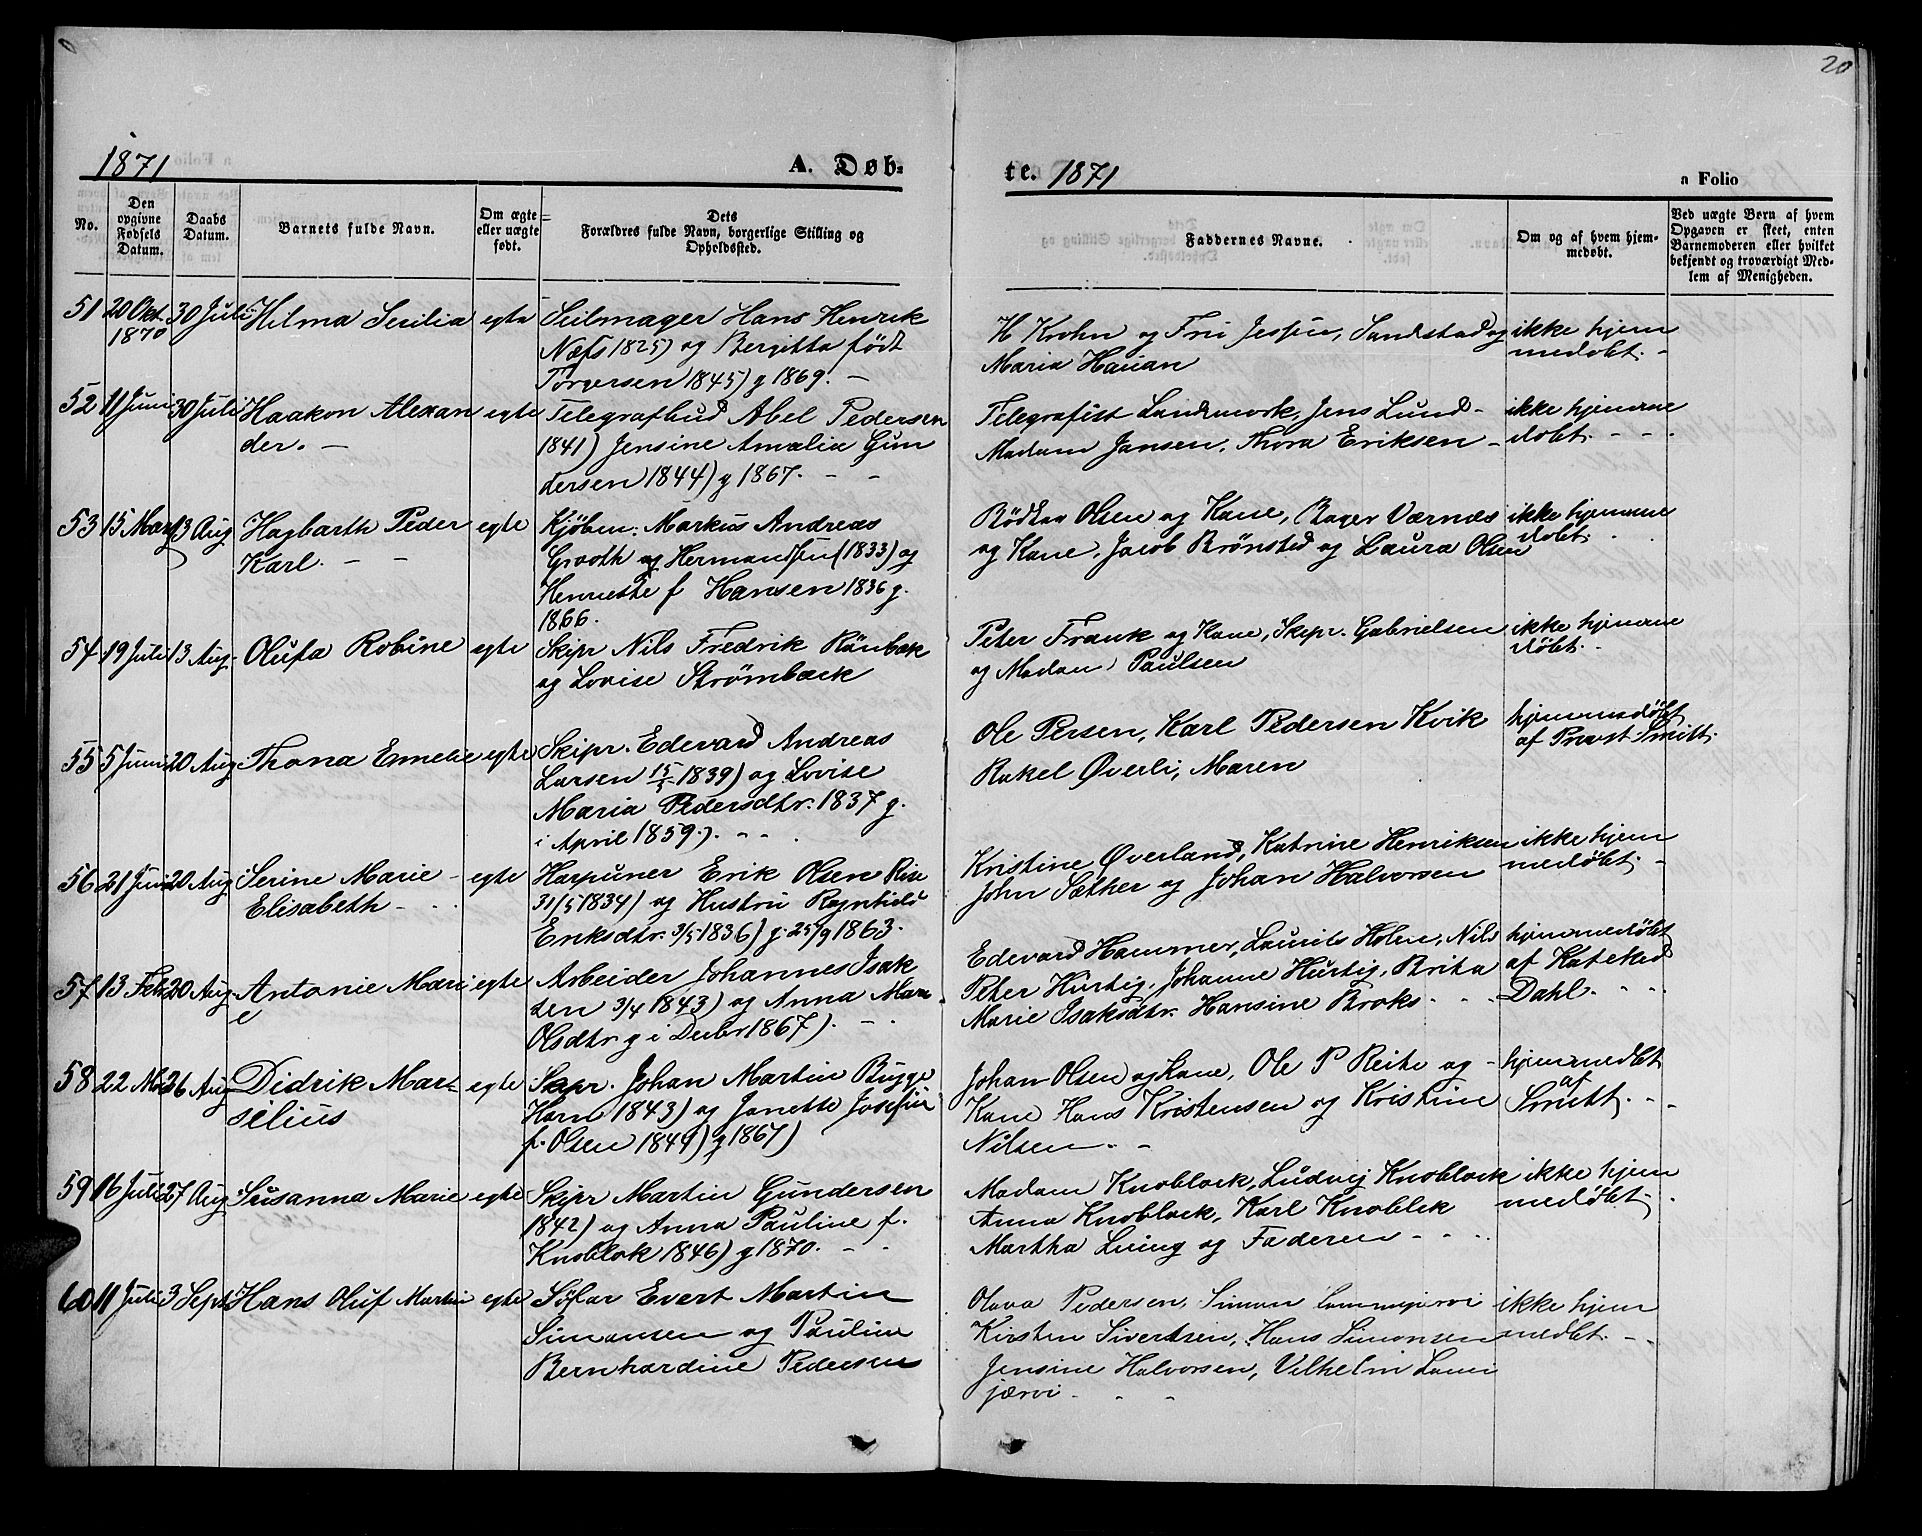 20
1871
A. Døb-
te. 1871
a Folio
No.
Den opgivne Fødsels Datum.
Daabs Datum.
Barnets fulde Navn.
Om ægte eller uægte født.
Dets Forældres fulde Navn, borgerlige Stilling og Opholdssted.
Faddernes Navne.
Om og af hvem hjemmedøbt.
Ved uægte Børn af hvem Opgaven er skeet, enten Barnemoderen eller hvilket bekjendt og troværdigt Medlem af Menigheden.
51 20 Okt 30 Juli Hilma Secilia egte Seilmager Hans Henrik
1870 Næfs 1825) og Bergitta født
Torgersen 1845) g 1869. –
H Krohn og Fru Jessen, Sandstad og ikke hjem
Maria Hauan medøbt. –
52 11 Juni 30 Juli Haakon Alexan egte Telegrafbud Abel Pedersen
der. – 1841) Jensine Amalia Gun
dersen 1844) g 1867. – –
Telegrafist Landmork, Jens Lund – ikke hjemme
Madam Jansen, Thora Eriksen – døbt. – – –
53 15 Mar 13 Aug Hagbarth Peder egte Kjøbm. Markus Andreas
Karl. – – Grooth og Hermansen (1833) og
Henriette f Hansen 1836 g.
1866.
Bödker Olsen og Kone, Bager Værnes ikke hjemme
og Kone, Jacob Brønsted og Laura Olsen døbt.
54 19 Juli 13 Aug. Olufa Robine egte Skipr Nils Fredrik Rönbæk
og Lovise Strømbæck
Peter Frank og Kone, Skipr. Gabrielsen ikke hjemme
og Madam Paulsen døbt.
55 5 Juni 20 Aug Thona Emelie egte Skipr. Edevard Andreas
Larsen 15/5 1839) og Lovise
Maria Pedersdtr. 1837 g.
i April 1859.)
Ole Persen, Karl Pedersen Kvik hjemmedøbt
Rakel Øverli, Maren af Provst Smitt.
56 21 Juni 20 Aug Serine Marie – egte Harpuner Erik Olsen Rise
Elisabeth – 31/5 1834) og Hustru Ragnhild
Eriksdtr. 3/5 1836) g. 25/9 1863.
Kristine Øverland, Katrine Henriksen ikke hjem
John Sæther og Johan Halvorsen medøbt. –
57 13 Feb 20 Aug. Antonie Mari egte Arbeider Johannes Isak
e sen 3/4 1843) og Anna Mari
Olsdtr g i Decbr 1867).
Edevard Hammer, Laurits Holm, Nils hjemmedøbt
Peter Hurtig, Johanne Hurtig, Brita af Kateked
Marie Isaksdtr. Hansine Broks Dahl.
58 22 Mai 26 Aug Didrik Mar- egte Skpr. Johan Martin Bugge
silius Horn 1843) og Janette Josefine
f. Olsen 1849) g 1867)
Johan Olsen og Kone, Ole P Reite og – hjemmedbt
Kone Hans Kristensen og Kristine af Smitt.
Nilsen. –
59 16 Juli 27 Aug Susanna Marie egte Skipr Martin Gundersen
1842) og Anna Pauline f.
Knoblok 1846) g 1870. – –
Madam Knoblock, Ludvig Knoblock ikke hjem
Anna Knoblock, Karl Knoblck medøbt.
Martha Luing og Faderen –
60 11 Juli 3 Sept Hans Oluf Martin egte Söfar Evert Martin
Simonsen og Pauline
Bernhardine Pedersen
Olava Pedersen, Simon Lammejærvi ikke hjem
Kirsten Sivertsen, Hans Simonsen medbt. – –
Jensine Halvorsen, Vilhelm Lam
jærvi –